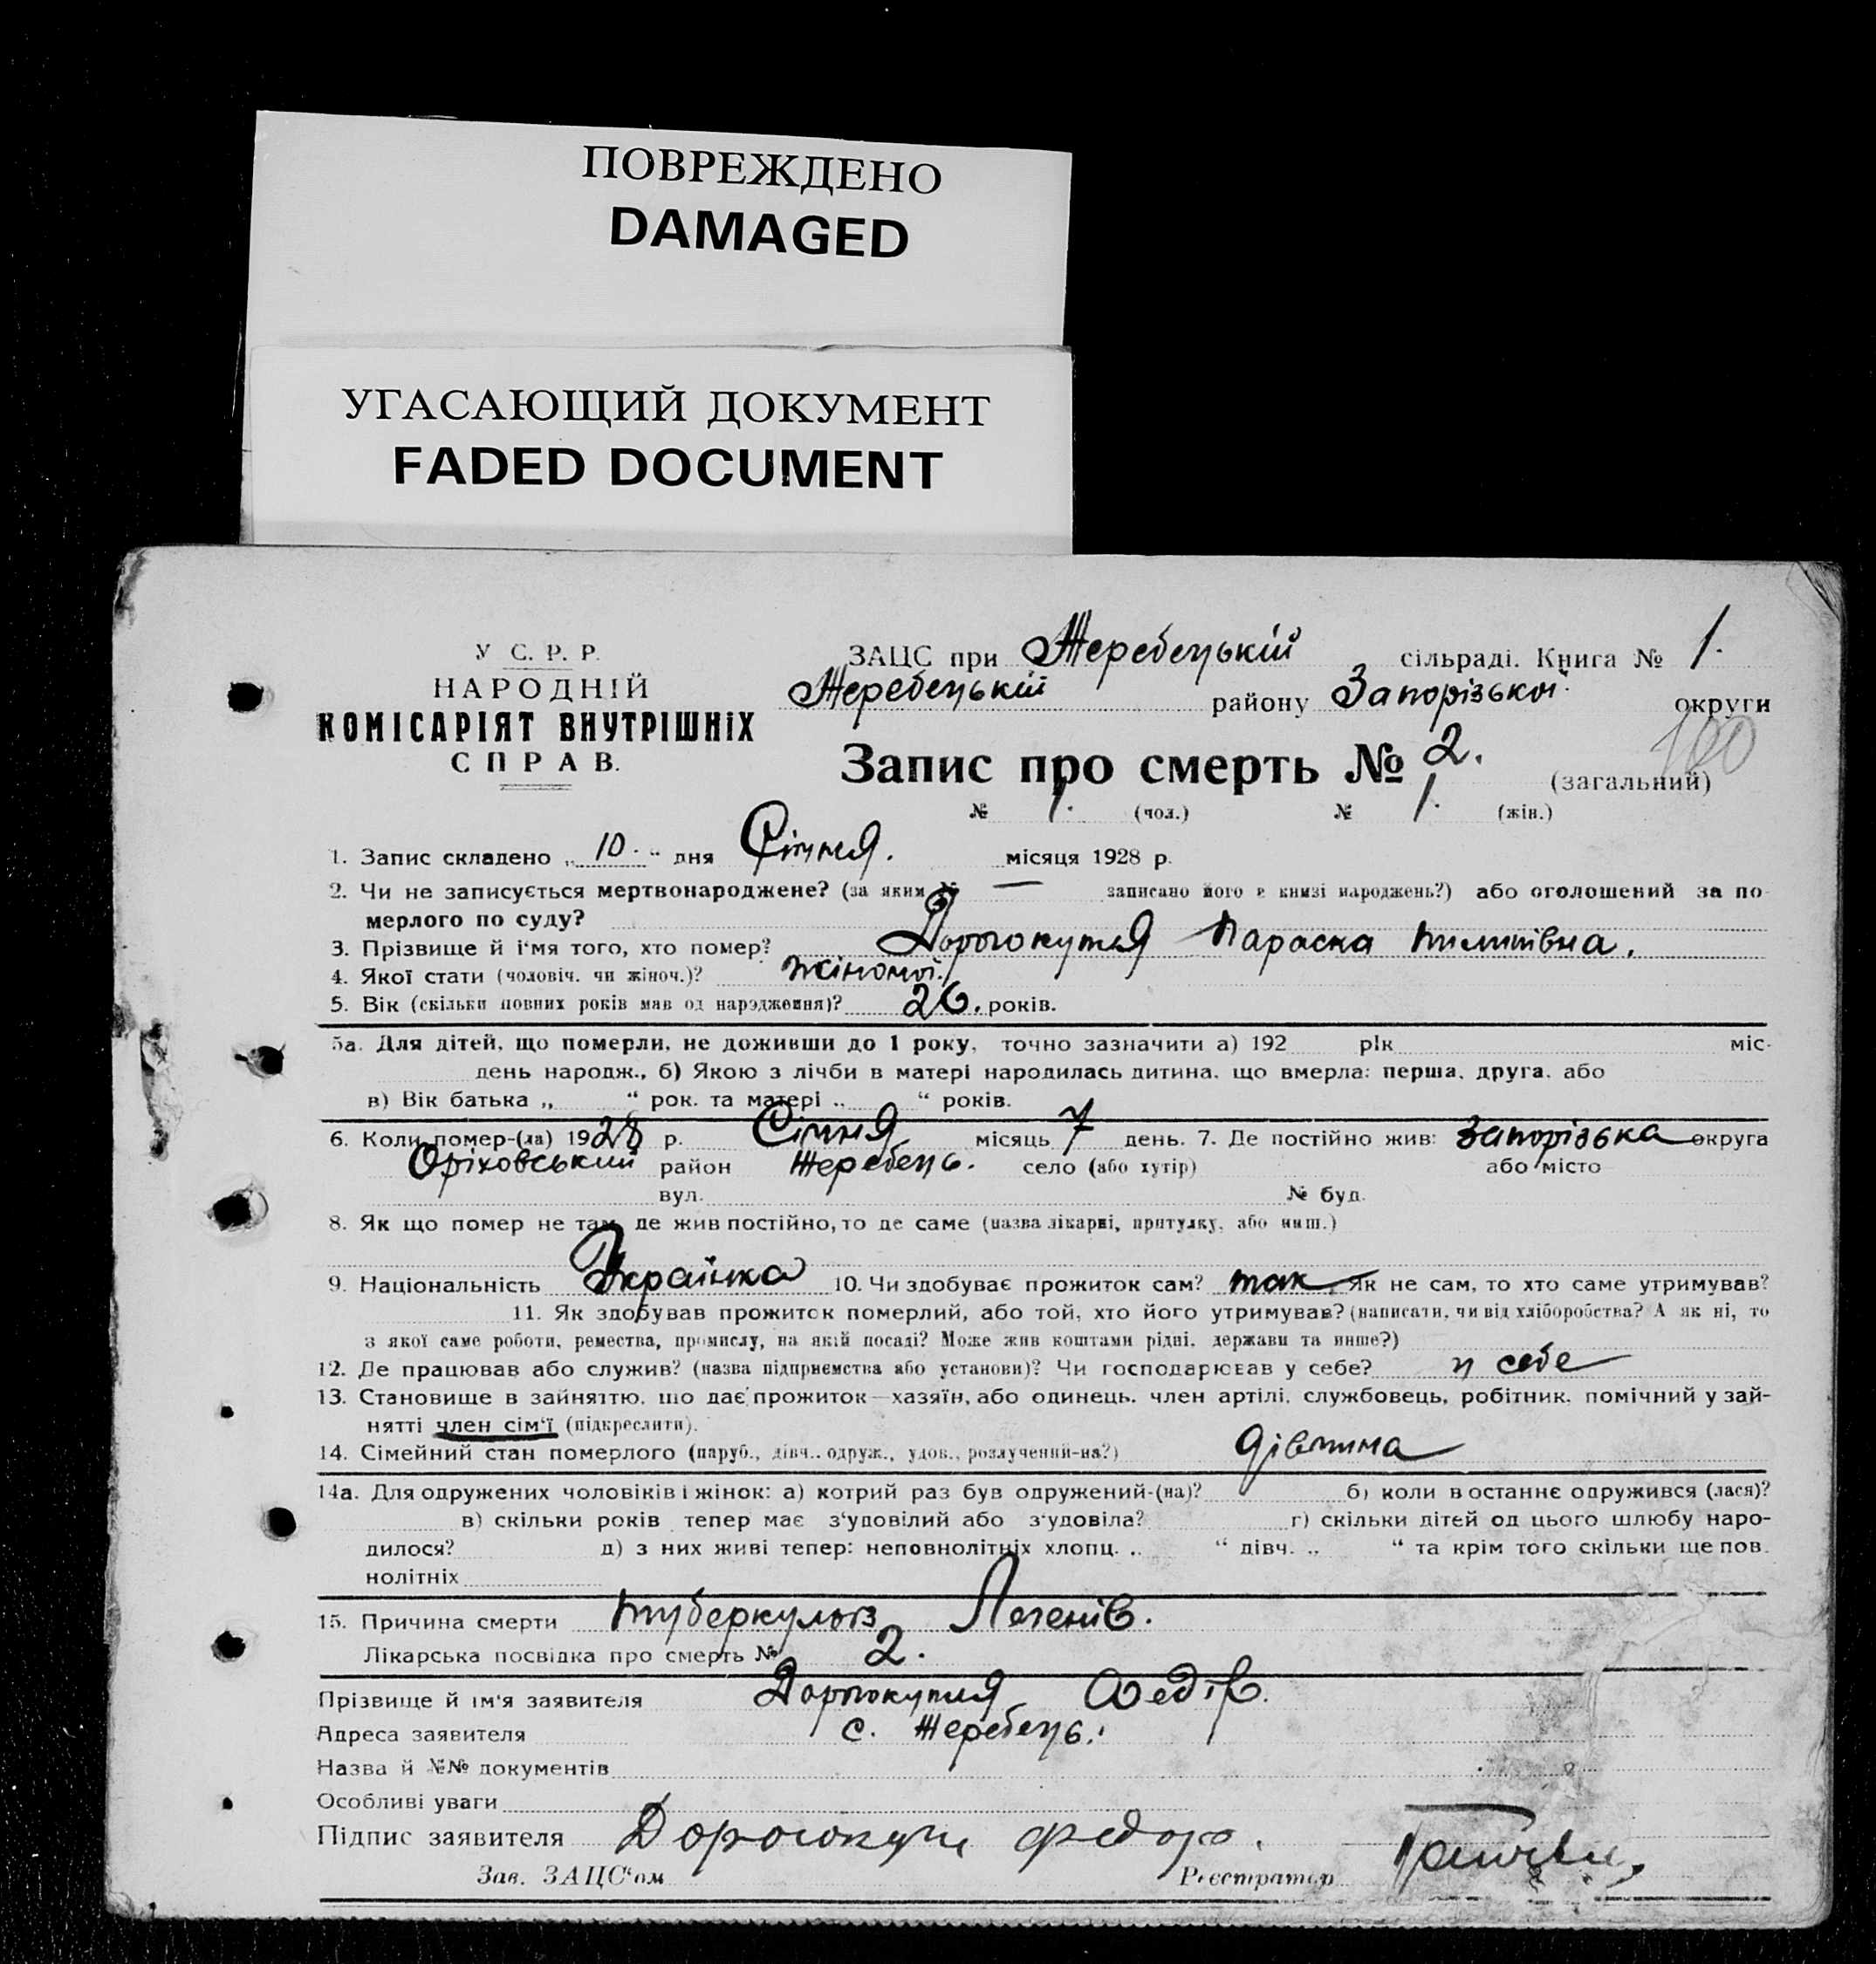 ПОВРЕЖДЕНО
DAMAGED
УГАСАЮЩИЙ ДОКУМЕНТ
FADED DOCUMENT
У С. Р. Р.
НАРОДНІЙ
КОМІСАРІЯТ ВНУТРІШНІХ
СПРАВ.
ЗАЦС при Жеребецькій сільраді. Книга № 1.
Жеребецькій району Запорізької округи
100
Запис про смерть № 2. (загальний)
№ 1. (чол.) № 1. (жін.)
1. Запис складено „10.“ дня Січня. місяця 1928 р.
2. Чи не записується мертвонароджене? (за яким № — записано його в книзі народжень?) або оголошений за по-
мерлого по суду?
3. Прізвище й і'мя того, хто помер? Дорогокупля Параска Тимишівна.
4. Якої стати (чоловіч. чи жіноч.)? жіночої.
5. Вік (скільки повних років мав од народження)? 26. років.
5а. Для дітей, що померли, не доживши до 1 року, точно зазначити а) 192 рік міс-
день народж., б) Якою з лічби в матері народилась дитина, що вмерла: перша, друга, або
в) Вік батька „ “ рок. та матері „ “ років.
6. Коли помер-(ла) 1928 р. Січня місяць 7 день. 7. Де постійно жив: Запорізька округа
Оріховський район Жеребець. село (або хутір) або місто
вул. № буд.
8. Як що помер не там, де жив постійно, то де саме (назва лікарні, притулку, або инш.)
9. Національність Українка 10. Чи здобуває прожиток сам? так. Як не сам, то хто саме утримував?
11. Як здобував прожиток померлий, або той, хто його утримував? (написати, чи від хліборобства? А як ні, то
з якої саме роботи, ремества, промислу, на якій посаді? Може жив коштами рідні, держави та инше?)
12. Де працював або служив? (назва підприємства або установи)? Чи господарював у себе? у себе
13. Становище в зайняттю, що дає прожиток—хазяїн, або одинець, член артілі, службовець, робітник, помічний у зай-
нятті член сім'ї (підкреслити).
14. Сімейний стан померлого (паруб., дівч., одруж., удов., розлучений-на?) дівчина
14а. Для одружених чоловіків і жінок: а) котрий раз був одружений-(на)? б) коли востаннє одружився (лася)?
в) скільки років тепер має з'удовілий або з'удовіла? г) скільки дітей од цього шлюбу наро-
дилося? д) з них живі тепер: неповнолітніх хлопц. „ “ дівч. „ “ та крім того скільки ще пов
нолітніх
15. Причина смерти туберкульоз Легенів.
Лікарська посвідка про смерть № 2.
Прізвище й ім'я заявителя Дорогокупля Федір.
Адреса заявителя с. Жеребець.
Назва й №№ документів
Особливі уваги
Підпис заявителя Дорогокупл Федор.
Зав. ЗАЦС'ом Реєстратор